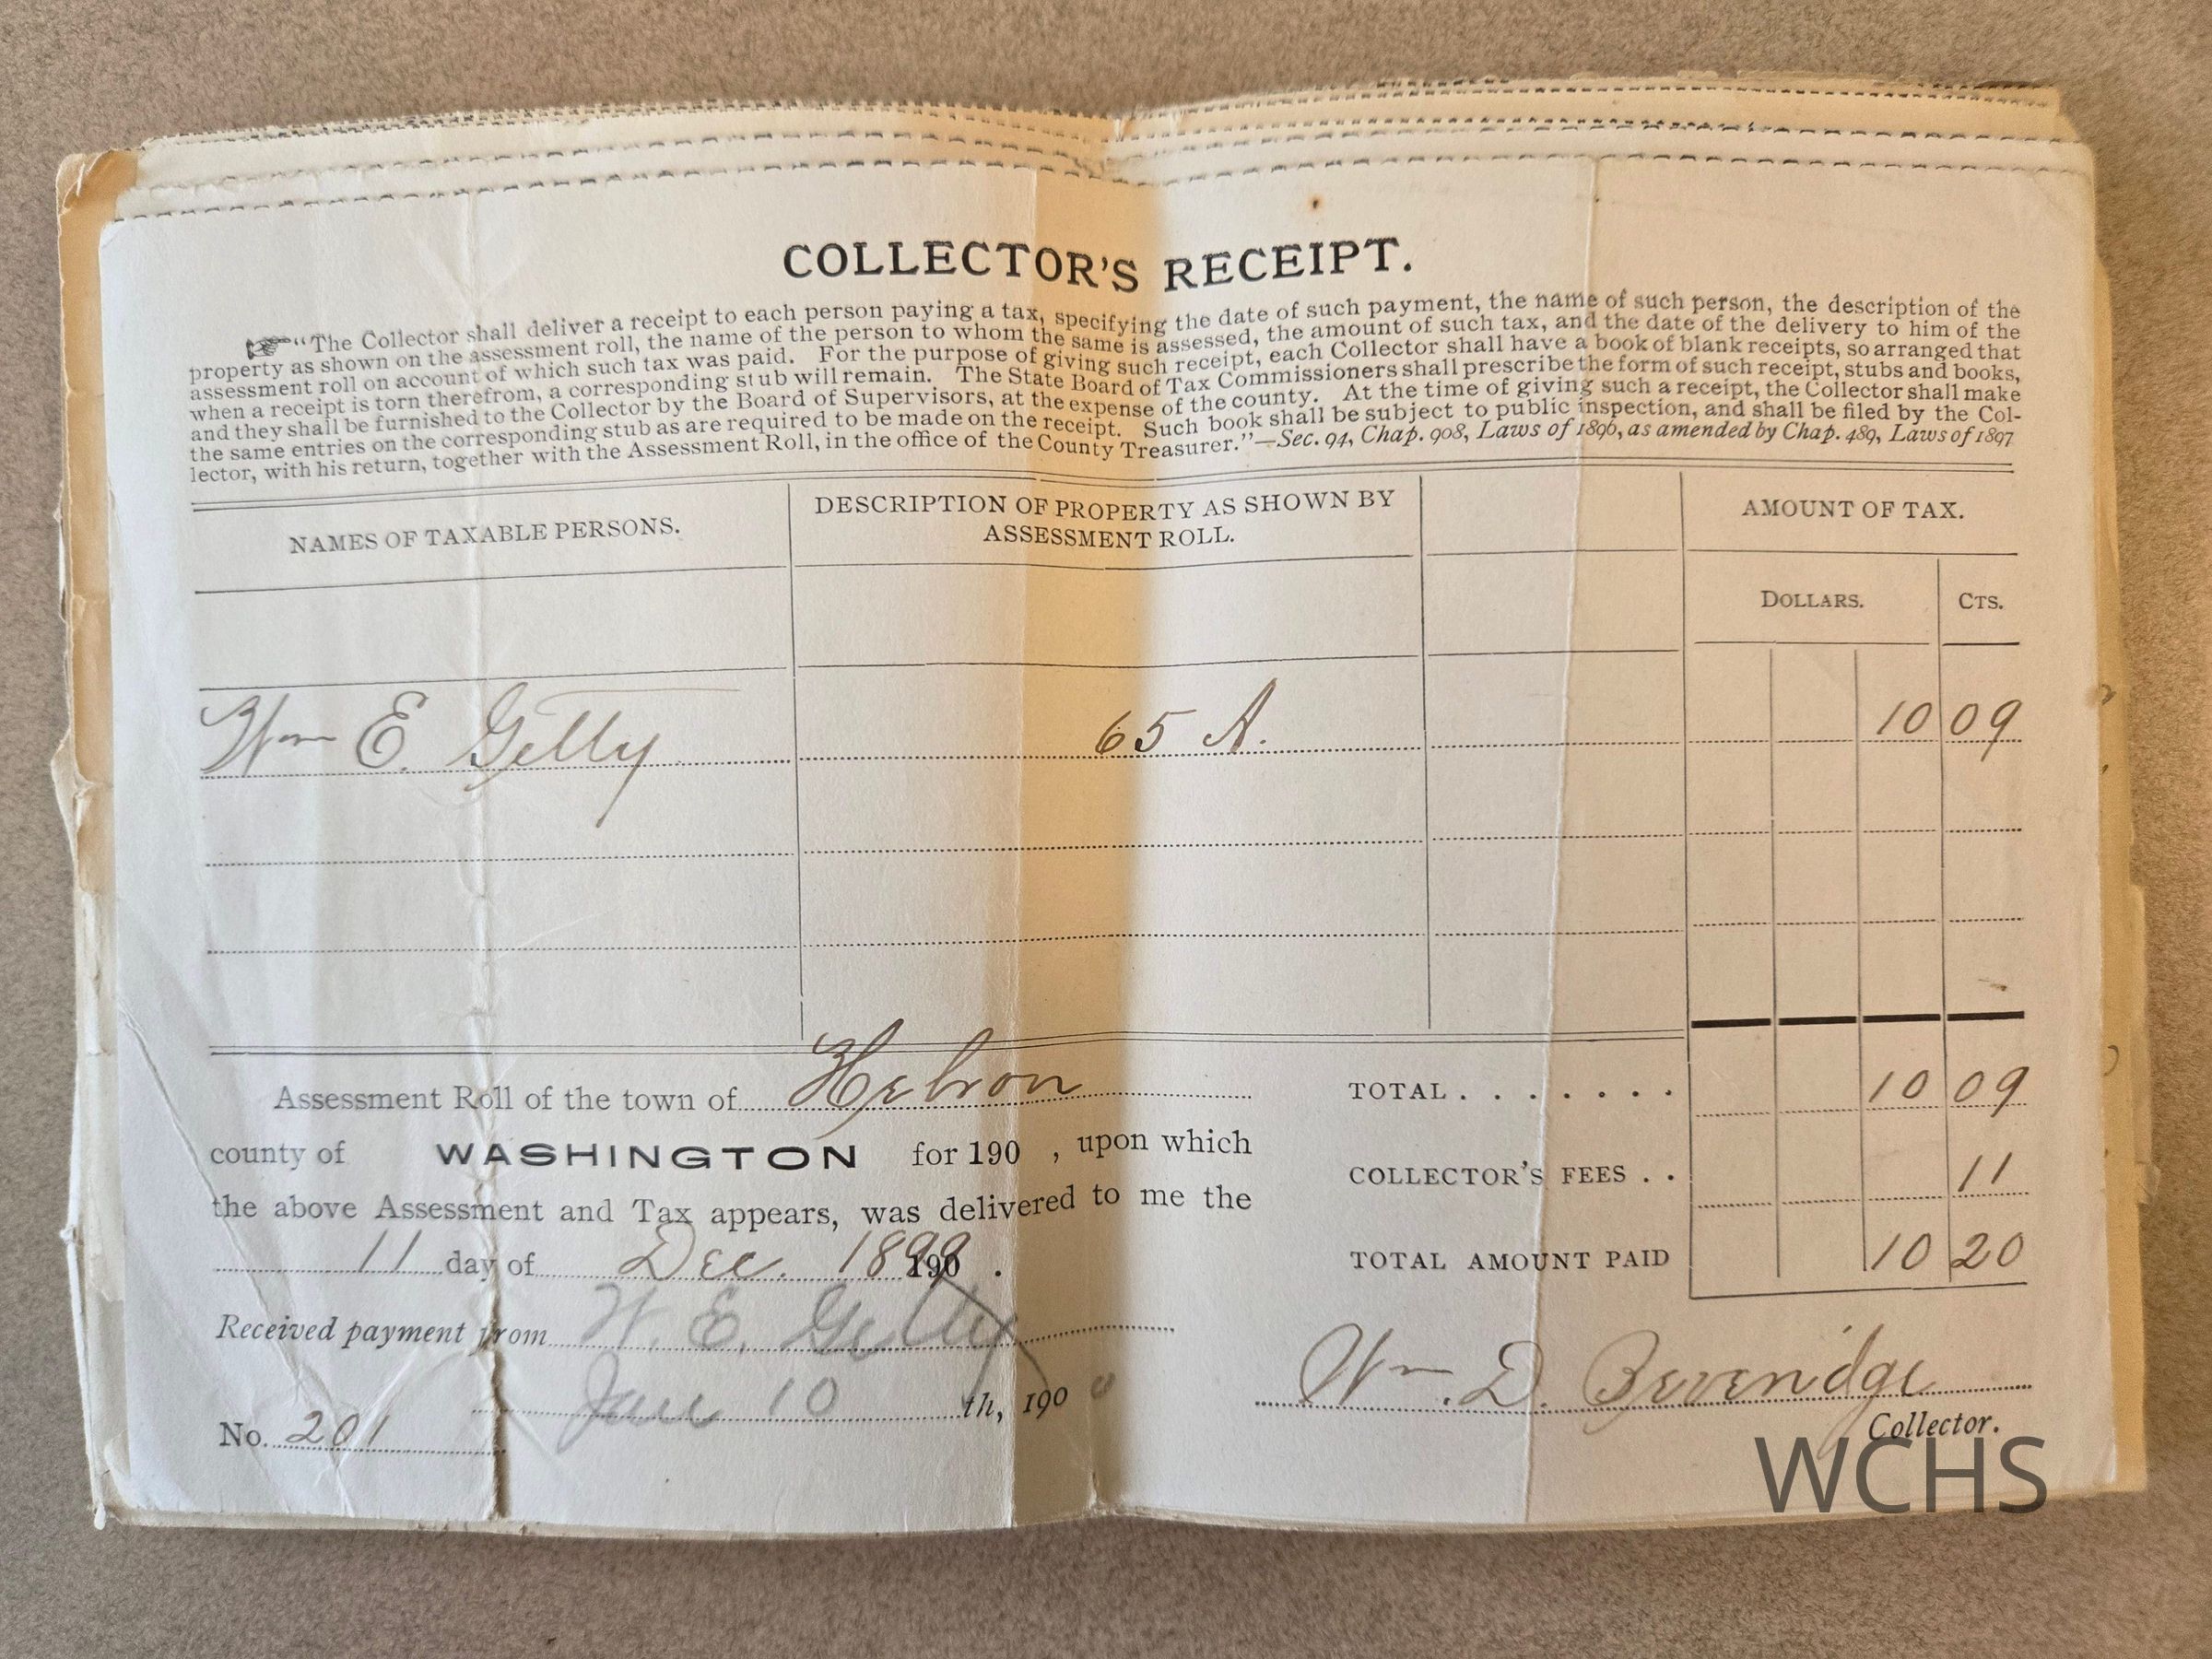 COLLECTOR'S RECEIPT.
☞"The Collector shall deliver a receipt to each person paying a tax, specifying the date of such payment, the name of such person, the description of the
property as shown on the assessment roll, the name of the person to whom the same is assessed, the amount of such tax, and the date of the delivery to him of the
assessment roll on account of which such tax was paid. For the purpose of giving such receipt, each Collector shall have a book of blank receipts, so arranged that
when a receipt is torn therefrom, a corresponding stub will remain. The State Board of Tax Commissioners shall prescribe the form of such receipt, stubs and books,
and they shall be furnished to the Collector by the Board of Supervisors, at the expense of the county. At the time of giving such a receipt, the Collector shall make
the same entries on the corresponding stub as are required to be made on the receipt. Such book shall be subject to public inspection, and shall be filed by the Col-
lector, with his return, together with the Assessment Roll, in the office of the County Treasurer."—Sec. 94, Chap. 908, Laws of 1896, as amended by Chap. 489, Laws of 1897
NAMES OF TAXABLE PERSONS.
DESCRIPTION OF PROPERTY AS SHOWN BY
ASSESSMENT ROLL.
AMOUNT OF TAX.
DOLLARS. CTS.
Wm E. Getty 65 A. 10 09
Assessment Roll of the town of Hebron
county of WASHINGTON for 190 , upon which
the above Assessment and Tax appears, was delivered to me the
11 day of Dec. 1899 190 .
Received payment from W. E. Getty
Jan 10 th, 1900
No. 201
TOTAL . . . . . . . 10 09
COLLECTOR'S FEES . . 11
TOTAL AMOUNT PAID 10 20
Wm. D. Beveridge
Collector.
WCHS